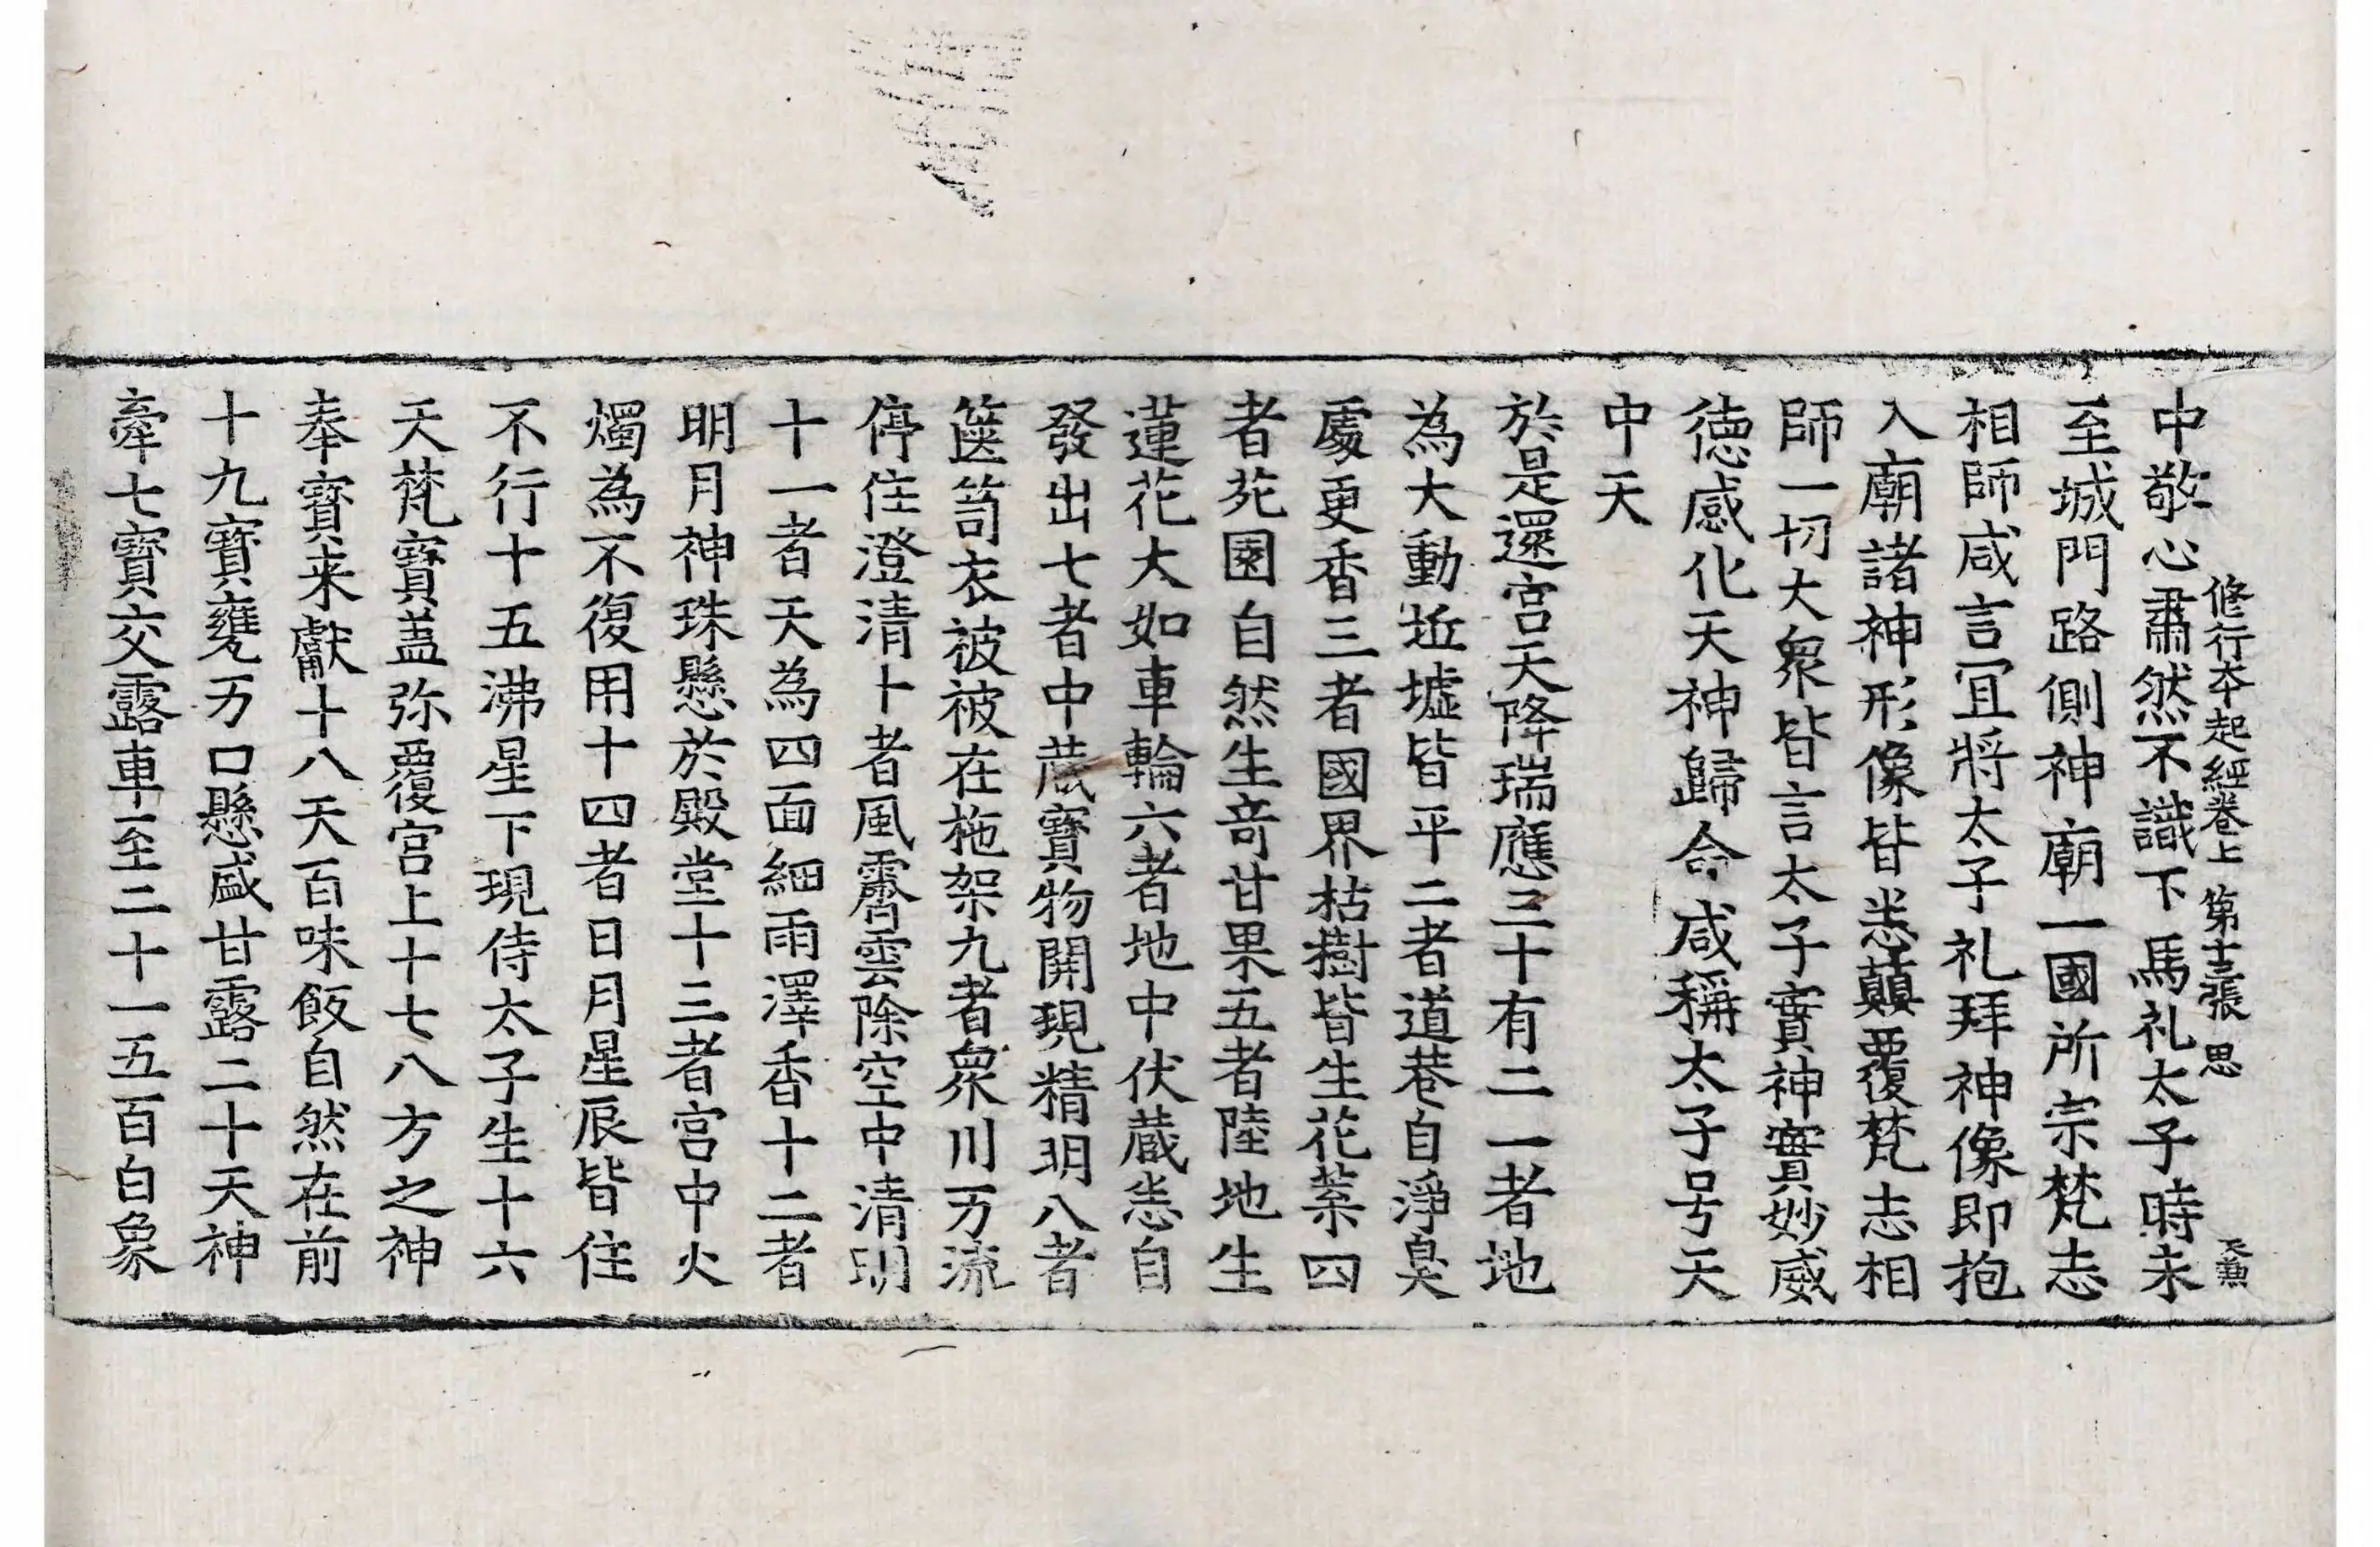 修行本起經卷上 第十三張 思
中敬心肅然不識下馬礼太子時未
至城門路側神廟一國所宗梵志
相師咸言冝將太子礼拜神像即抱
入廟諸神形像皆悉顛覆梵志相
師一切大衆皆言太子實神實妙威
徳感化天神歸命咸稱太子号天
中天
於是還宮天降瑞應三十有二一者地
為大動坵墟皆平二者道巷自淨臭
處更香三者國界枯樹皆生花葉四
者苑園自然生竒甘果五者陸地生
蓮花大如車輪六者地中伏蔵悉自
發出七者中蔵寶物開現精明八者
篋笥衣被被在拖架九者衆川万流
停住澄清十者風霽雲除空中清明
十一者天為四面細雨澤香十二者
明月神珠懸於殿堂十三者宮中火
燭為不復用十四者日月星辰皆住
不行十五沸星下現侍太子生十六
天梵寶盖弥覆宮上十七八方之神
奉寶来獻十八天百味飯自然在前
十九寶甕万口懸盛甘露二十天神
牽七寶交露車至二十一五百白象